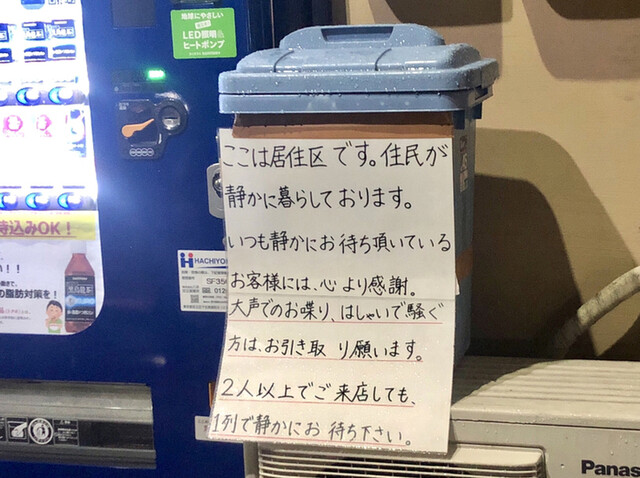 地球にやさしい
LED照明&
ヒートポンプ
ここは居住区です。住民が
静かに暮らしております。
いつも静かにお待ち頂いている
お客様には、心より感謝。
大声でのお喋り、はしゃいで騒ぐ
方は、お引き取り願います。
2人以上でご来店しても、
1列で静かにお待ち下さい。
持込みOK!
の脂肪対策を!
HACHIYO
Panas